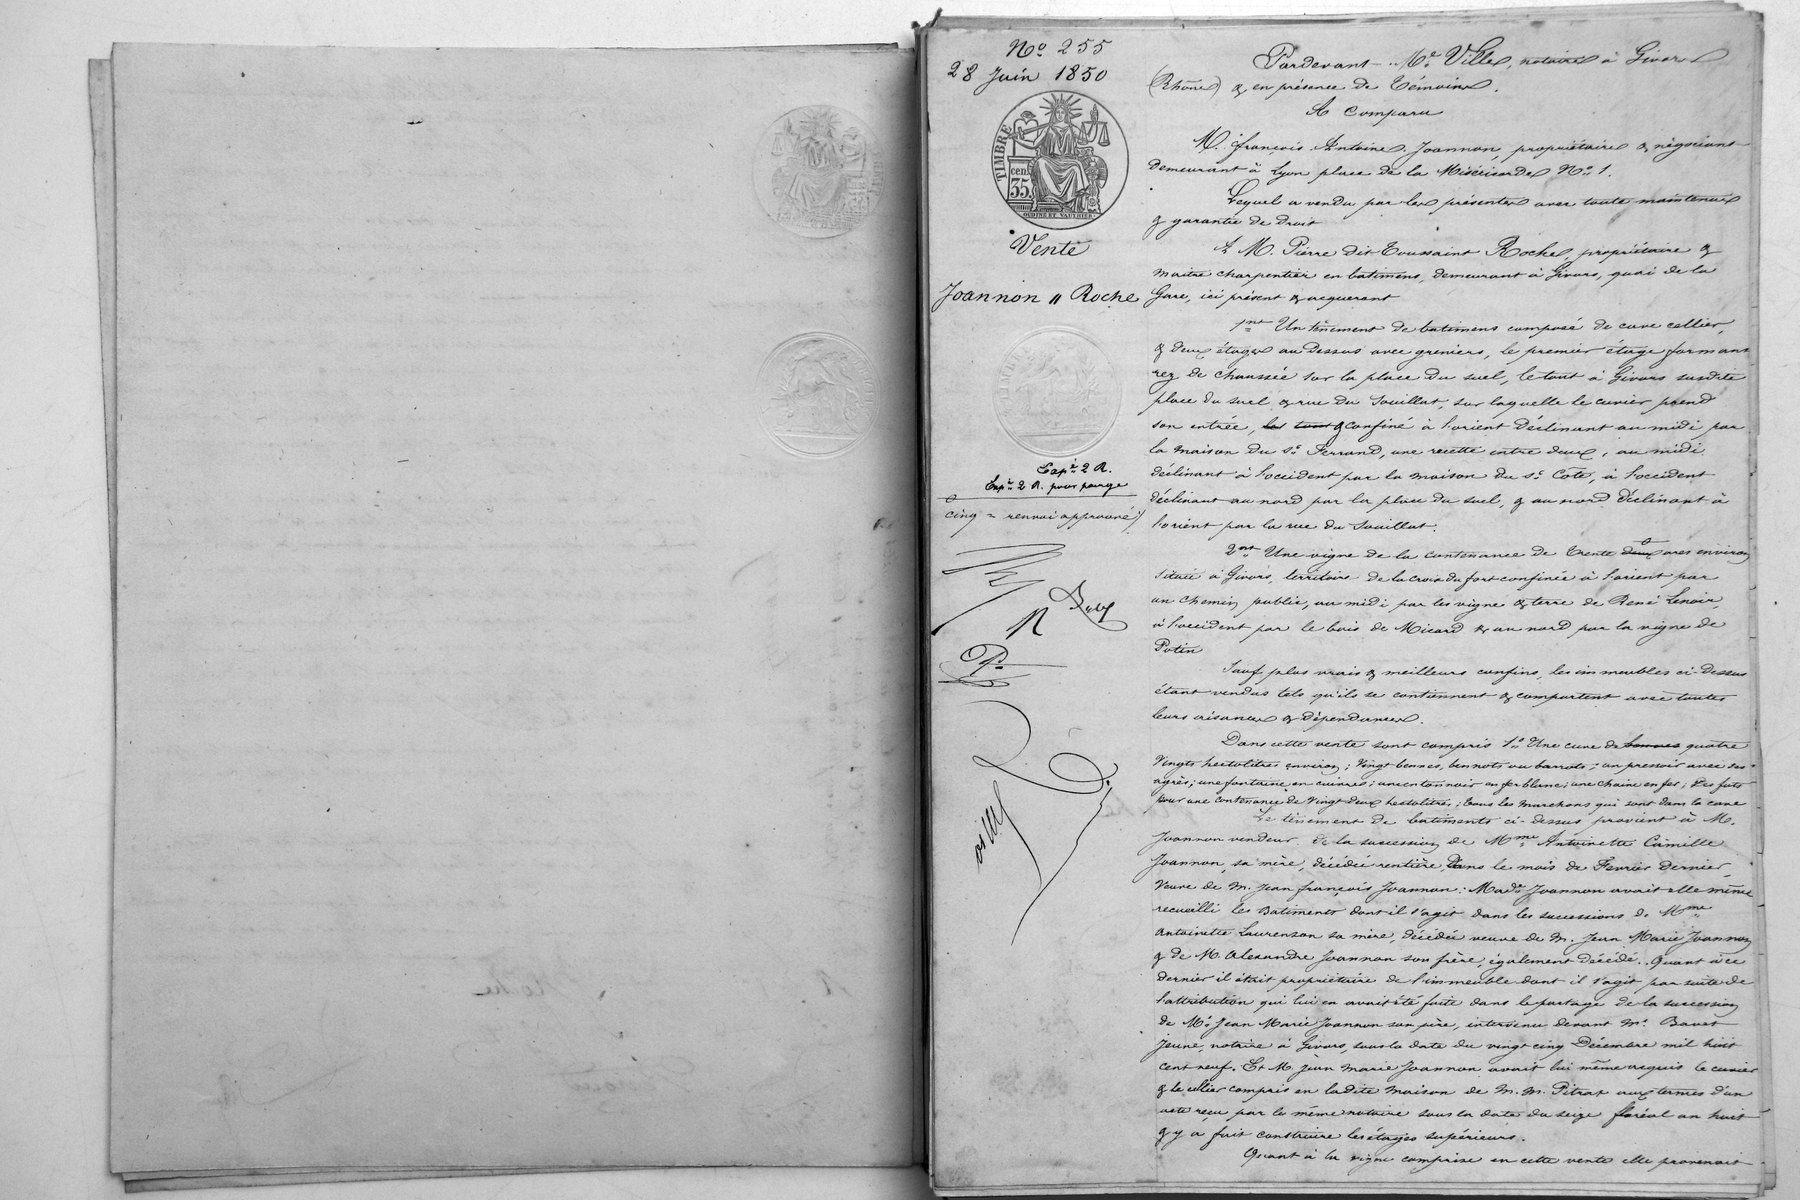 N° 255
28 Juin 1850
TIMBRE
cen.
35.
OUDINÉ ET VAUTHIER.
Vente
Joannon // Roche
Exp.on 2 R.
Exp.on 2 R. pour purge
cinq = renvoi approuvé
R
Ville
Pardevant Me Ville, notaire à Givors
(Rhône) & en présence de Témoins.
A comparu
M. François Antoine Joannon, propriétaire & négociant
demeurant à Lyon place de la Miséricorde No 1.
Lequel a vendu par les présentes avec toute maintenue
& garantie de droit
A M. Pierre dit Toussaint Roche, propriétaire &
maitre charpentier en batimens, demeurant à Givors, quai de la
Gare, ici présent & acquerant
1ent Un tènement de batimens composé de cave cellier,
& deux étages au dessus avec greniers, le premier étage formant
rez de chaussée sur la place du suel, le tout à Givors susdite
place du suel & rue du Souillat, sur laquelle le cuvier prend
son entrée, & confiné à l'orient déclinant au midi par
la maison du sr Ferrand, une ruette entre deux, au midi
déclinant à l'occident par la maison du sr Cote, à l'occident
déclinant au nord par la place du suel, & au nord déclinant à
l'orient par la rue du Souillat.
2ent Une vigne de la contenance de trente deux ares environ
située à Givors, territoire de la croix du fort confinée à l'orient par
un chemin public, au midi par les vigne & terre de René Lenoir,
à l'occident par le bois de Micard & au nord par la vigne de
Potin
Sauf plus vrais & meilleurs confins, les immeubles ci-dessus
étant vendus tels qu'ils se contiennent & comportent avec toutes
leurs aisances & dépendances.
Dans cette vente sont compris 1° Une cuve de quatre
vingts hectolitres environ; vingt bennes, bennots ou barrots; un pressoir avec ses
agrès; une fontaine en cuivre; un entonnoir en fer blanc; une chaine en fer; des futs
pour une contenance de vingt deux hectolitres; tous les marchons qui sont dans la cave
Le tènement de batiments ci-dessus provient à M.
Joannon vendeur de la succession de Mme Antoinette Camille
Joannon, sa mère, décédée rentière dans le mois de Fevrier dernier,
veuve de M. Jean françois Joannon: Made Joannon avait elle même
recueilli les Batiments dont il s'agit dans les successions de Mme
Antoinette Laurenson sa mère, décédée veuve de M. Jean Marie Joannon
& de M. Alexandre Joannon son frère, également décédé. Quant à ce
dernier il était propriétaire de l'immeuble dont il s'agit par suite de
l'attribution qui lui en avait été faite dans le partage de la succession
de Mr Jean Marie Joannon son père, intervenu devant Me Bavet
jeune, notaire à Givors, sous la date du vingt cinq Décembre mil huit
cent neuf. Et M. jean marie Joannon avait lui même acquis le cuvier
& le cellier compris en la dite maison de M. M. Pitrat aux termes d'un
acte reçu par le même notaire sous la date du seize floréal an huit
& y a fait construire les étages supérieurs.
Quant à la vigne comprise en cette vente elle provenait